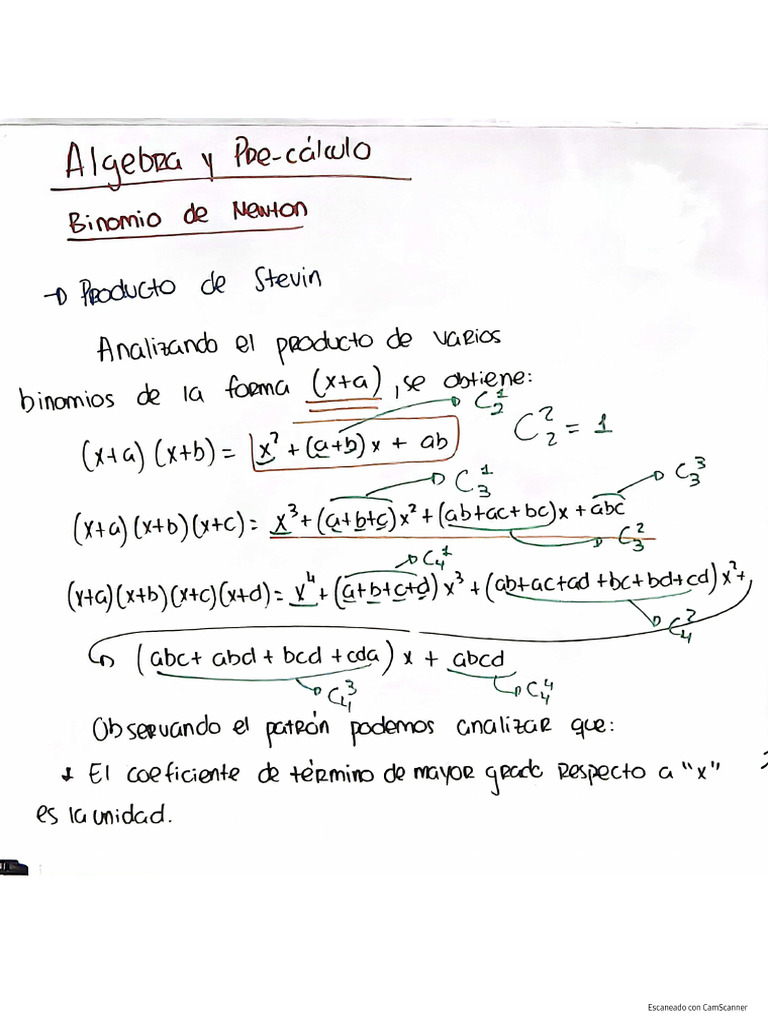 Algebra y Pre-cálculo
Binomio de Newton
→ Producto de Stevin
Analizando el producto de varios
binomios de la forma (x+a), se obtiene:
C₂¹
(x+a) (x+b) = x² + (a+b)x + ab C₂² = 1
C₃¹ C₃³
(x+a)(x+b)(x+c) = x³+(a+b+c)x²+(ab+ac+bc)x+abc
C₃²
C₄¹
(x+a)(x+b)(x+c)(x+d) = x⁴+(a+b+c+d)x³+(ab+ac+ad+bc+bd+cd)x²+
C₄²
(abc+ abd + bcd + cda) x + abcd
C₄³ C₄⁴
Observando el patrón podemos analizar que:
* El coeficiente de término de mayor grado respecto a "x"
es la unidad.
Escaneado con CamScanner